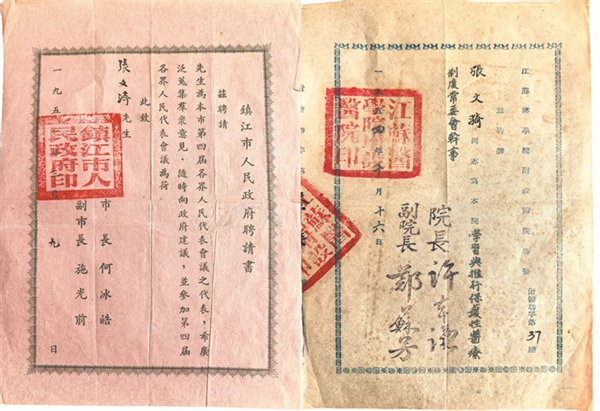 鎮江市人民政府聘請書
茲聘請
先生為本市第四届各界人民代表會議之代表，希廣
泛蒐集羣衆意見，隨時向政府建議，並參加第四届
各界人民代表會議為荷
此致
張文 先生
市長 何冰皓
副市長 施光前
一九五 九 日
鎮江市人民政府印
江蘇醫學院附設醫院 附醫 字第37號
張文 同志為本院學習與推行保護性醫療
制度常委會幹事
院長 許
副院長 鄭蘇
一 五四年十月十六日
江蘇醫學院附設醫院印